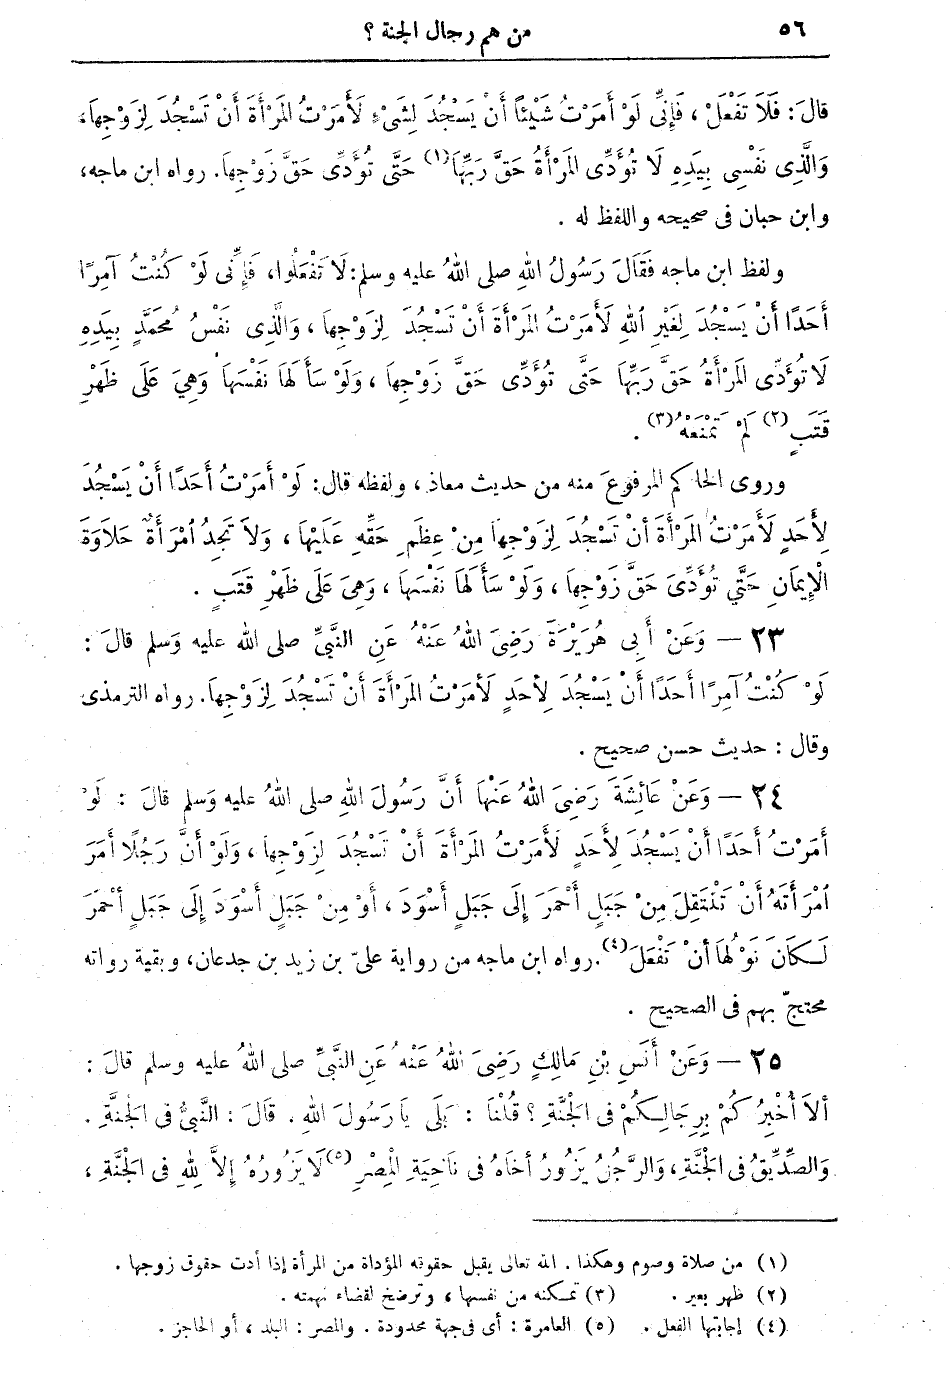 ٥٦ من هم رجال الجنة ؟
قالَ: فَلَا تَفْعَلْ ، فَإِنِّى لَوْ أَمَرْتُ شَيْئاً أَنْ يَسْجُدَ لِشَىْءٍ لَأَمَرْتُ المَرْأَةَ أَنْ تَسْجُدَ لِزَوْجِهاَ،
وَالَّذِى نَفْسِى بِيَدِهِ لَا تُؤَدِّى المَرْأَةُ حَقَّ رَبِّهاَ(١) حَتَّى تُؤَدِّىَ حَقَّ زَوْجِهاَ. رواه ابن ماجه،
وابن حبان فى صحيحه واللفظ له .
ولفظ ابن ماجه فَقَالَ رَسُولُ اللهِ صلى اللهُ عليه وسلم: لَا تَفْعَلُوا، فَإِنِّى لَوْ كُنْتُ آمِرًا
أَحَدًا أَنْ يَسْجُدَ لِغَيْرِ اللهِ لَأَمَرْتُ المَرْأَةَ أَنْ تَسْجُدَ لِزَوْجِهاَ ، وَالَّذِى نَفْسُ مُحَمَّدٍ بِيَدِهِ
لَا تُؤَدِّى المَرْأَةُ حَقَّ رَبِّهاَ حَتَّى تُؤَدِّىَ حَقَّ زَوْجِهاَ ، وَلَوْ سَأَلَهاَ نَفْسَهاَ وَهِيَ عَلَى ظَهْرِ
قَتَبٍ(٢) لَمْ تَمْنَعْهُ(٣) .
وروى الحاكم المرفوعَ منه من حديث معاذ ، ولفظه قال: لَوْ أَمَرْتُ أَحَدًا أَنْ يَسْجُدَ
لِأَحَدٍ لَأَمَرْتُ المَرْأَةَ أَنْ تَسْجُدَ لِزَوْجِهاَ مِنْ عِظَمِ حَقِّهِ عَلَيْهَا ، وَلاَ تَجِدُ امْرَأَةٌ حَلَاوَةَ
الْإِيمَانِ حَتَّى تُؤَدِّىَ حَقَّ زَوْجِهاَ ، وَلَوْ سَأَلَهاَ نَفْسَهاَ ، وَهِىَ عَلَى ظَهْرِ قَتَبٍ .
٢٣ — وَعَنْ أَبِى هُرَيْرَةَ رَضِىَ اللهُ عَنْهُ عَنِ النَّبِىِّ صلى الله عليه وَسلم قالَ :
لَوْ كُنْتُ آمِرًا أَحَدًا أَنْ يَسْجُدَ لِأَحَدٍ لَأَمَرْتُ المَرْأَةَ أَنْ تَسْجُدَ لِزَوْجِهاَ. رواه الترمذى
وقال : حديث حسن صحيح .
٢٤ — وَعَنْ عَائِشَةَ رَضِىَ اللهُ عَنْهاَ أَنَّ رَسُولَ اللهِ صلى اللهُ عليه وَسلم قالَ : لَوْ
أَمَرْتُ أَحَدًا أَنْ يَسْجُدَ لِأَحَدٍ لَأَمَرْتُ المَرْأَةَ أَنْ تَسْجُدَ لِزَوْجِهاَ ، وَلَوْ أَنَّ رَجُلًا أَمَرَ
امْرَأَتَهُ أَنْ تَنْتَقِلَ مِنْ جَبَلٍ أَحْمَرَ إِلَى جَبَلٍ أَسْوَدَ ، أَوْ مِنْ جَبَلٍ أَسْوَدَ إِلَى جَبَلٍ أَحْمَرَ
لَكَانَ نَوْلُهَا أَنْ تَفْعَلَ(٤). رواه ابن ماجه من رواية علىّ بن زيد بن جدعان، وبقية رواته
محتجّ بهم فى الصحيح .
٢٥ — وَعَنْ أَنَسِ بْنِ مَالِكٍ رَضِىَ اللهُ عَنْهُ عَنِ النَّبِىِّ صلى اللهُ عليه وسلم قالَ :
أَلاَ أُخْبِرُكُمْ بِرِجَالِكُمْ فى الْجَنَّةِ ؟ قُلْنَا : بَلَى يَا رَسُولَ اللهِ . قَالَ : النَّبِىُّ فى الْجَنَّةِ .
وَالصِّدِّيقُ فى الْجَنَّةِ ، وَالرَّجُلُ يَزُورُ أَخَاهُ فى نَاحِيَةِ الْمِصْرِ(٥) لَا يَزُورُهُ إِلاَّ لِلهِ فى الْجَنَّةِ ،
(١) من صلاة وصوم وهكذا . الله تعالى يقبل حقوقه المؤداة من المرأة إذا أدت حقوق زوجها .
(٢) ظهر بعير . (٣) تمكنه من نفسها ، وترضخ لقضاء نهمته .
(٤) إجابتها الفعل . (٥) العامرة : أى فى جهة محدودة . والمصر : البلد ، أو الحاجز .